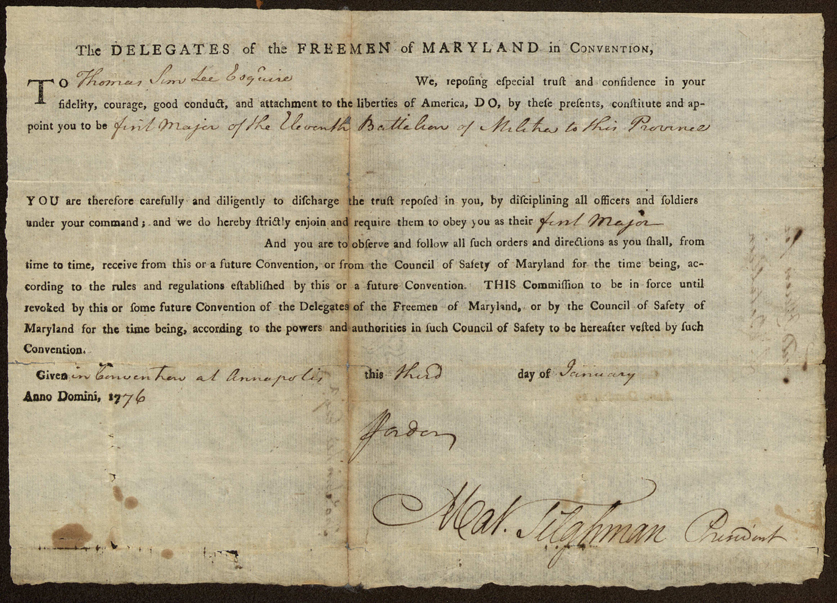 The DELEGATES of the FREEMEN of MARYLAND in CONVENTION,
To Thomas Sim Lee Esquire We, reposing especial trust and confidence in your
fidelity, courage, good conduct, and attachment to the liberties of America, DO, by these presents, constitute and ap-
point you to be first Major of the Eleventh Battalion of Militia to this Province
YOU are therefore carefully and diligently to discharge the trust reposed in you, by disciplining all officers and soldiers
under your command; and we do hereby strictly enjoin and require them to obey you as their first Major
And you are to observe and follow all such orders and directions as you shall, from
time to time, receive from this or a future Convention, or from the Council of Safety of Maryland for the time being, ac-
cording to the rules and regulations established by this or a future Convention. THIS Commission to be in force until
revoked by this or some future Convention of the Delegates of the Freemen of Maryland, or by the Council of Safety of
Maryland for the time being, according to the powers and authorities in such Council of Safety to be hereafter vested by such
Convention.
Given in Convention at Annapolis this third day of January
Anno Domini, 1776
Mat. Tilghman President